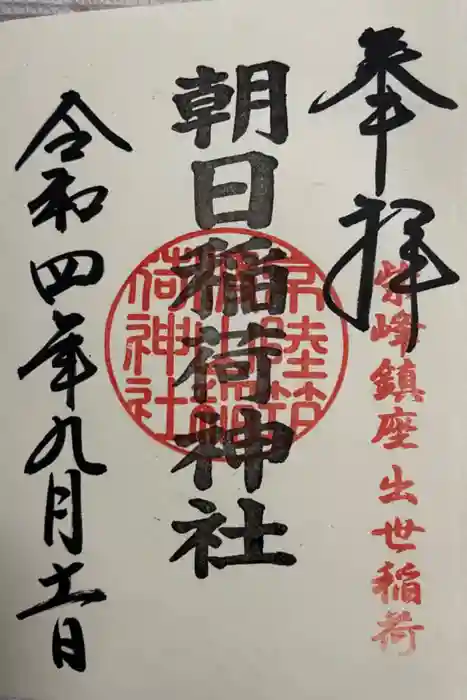 奉拝
紫峰鎮座出世稲荷
朝日稲荷神社
令和四年九月十一日